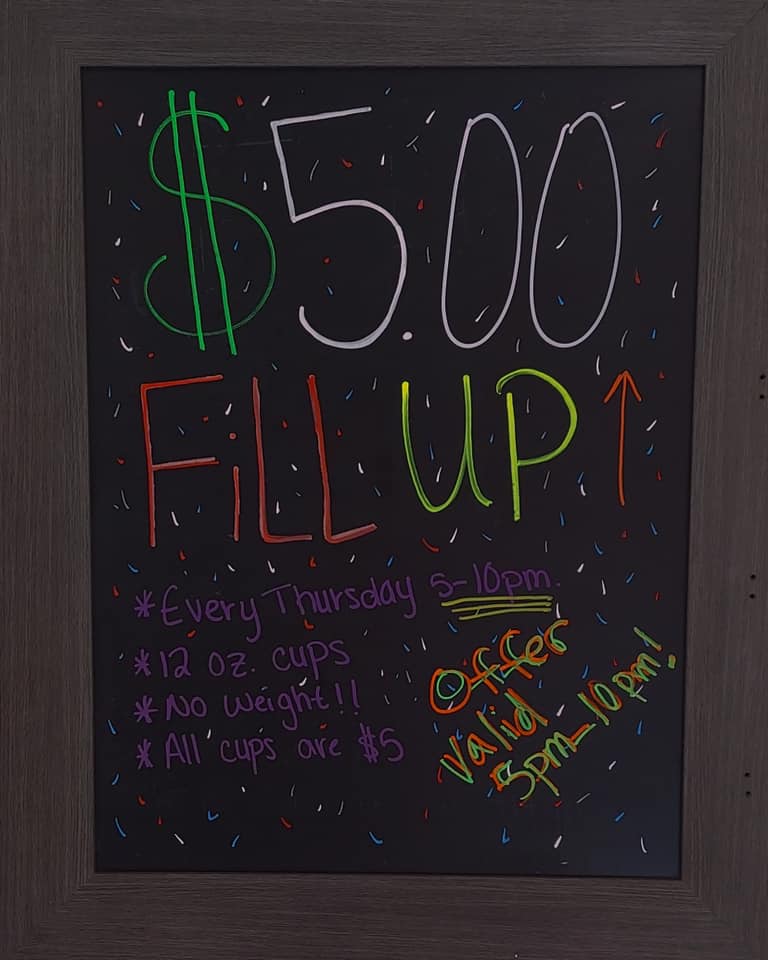 $5.00
FiLL UP ↑
*Every Thursday 5-10pm.
*12 oz. cups
*No weight!!
*All cups are $5
Offer
valid
5pm-10pm!